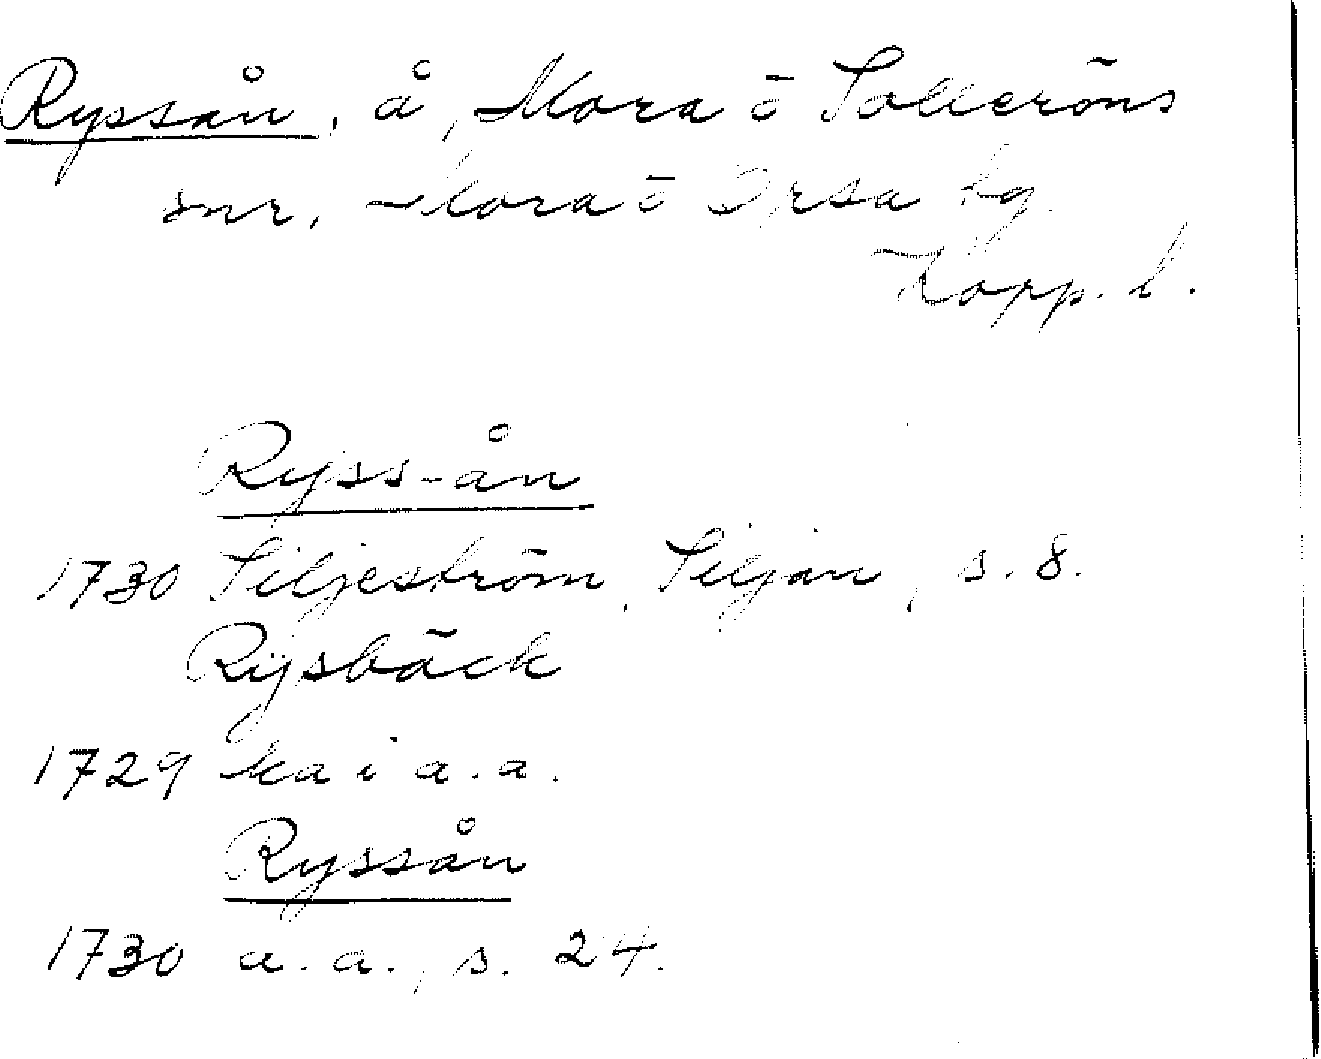 Ryssån, å, Mora o Solleröns
snr, Mora o Orsa tg
Kopp. l.
Ryss-ån
1730 Siljeström, Siljan, s. 8.
Rysbäck
1729 ka i a.a.
Ryssån
1730 a.a., s. 24.